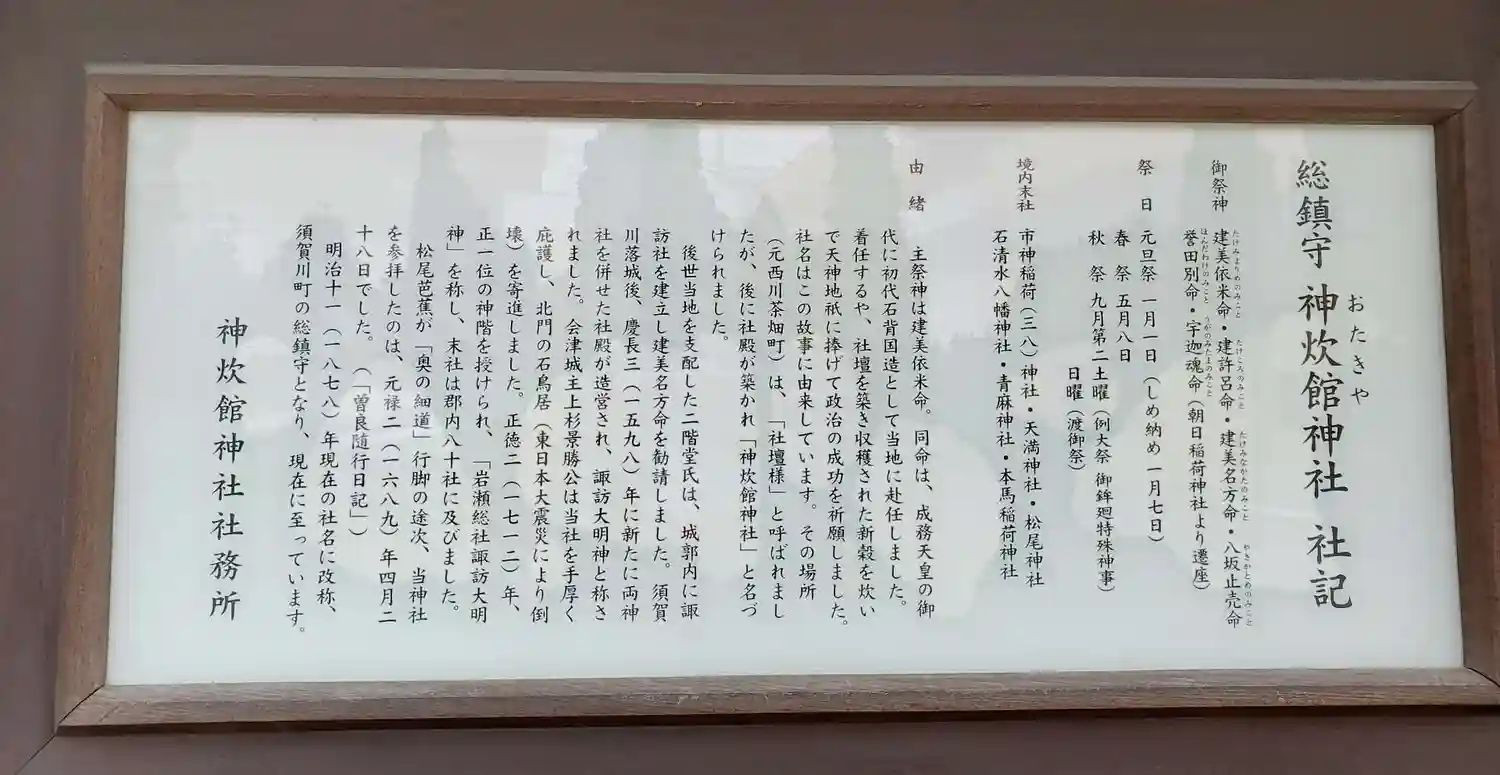 総鎮守 神炊館神社 社記
おたきや
御祭神
建美依米命・建許呂命・建美名方命・八坂止売命
たけみよりめのみこと たけころのみこと たけみなかたのみこと やさかとめのみこと
誉田別命・宇迦魂命(朝日稲荷神社より遷座)
ほんだわけのみこと うがのみたまのみこと
祭 日
元旦祭 一月一日(しめ納め 一月七日)
春 祭 五月八日
秋 祭 九月第二土曜(例大祭 御鉾廻特殊神事)
日曜(渡御祭)
境内末社
市神稲荷(三八)神社・天満神社・松尾神社
石清水八幡神社・青麻神社・本馬稲荷神社
由 緒
主祭神は建美依米命。同命は、成務天皇の御
代に初代石背国造として当地に赴任しました。
着任するや、社壇を築き収穫された新穀を炊い
で天神地祇に捧げて政治の成功を祈願しました。
社名はこの故事に由来しています。その場所
(元西川茶畑町)は、「社壇様」と呼ばれまし
たが、後に社殿が築かれ「神炊館神社」と名づ
けられました。
後世当地を支配した二階堂氏は、城郭内に諏
訪社を建立し建美名方命を勧請しました。須賀
川落城後、慶長三(一五九八)年に新たに両神
社を併せた社殿が造営され、諏訪大明神と称さ
れました。会津城主上杉景勝公は当社を手厚く
庇護し、北門の石鳥居(東日本大震災により倒
壊)を寄進しました。正徳二(一七一二)年、
正一位の神階を授けられ、「岩瀬総社諏訪大明
神」を称し、末社は郡内八十社に及びました。
松尾芭蕉が「奥の細道」行脚の途次、当神社
を参拝したのは、元禄二(一六八九)年四月二
十八日でした。(「曽良随行日記」)
明治十一(一八七八)年現在の社名に改称、
須賀川町の総鎮守となり、現在に至っています。
神炊館神社社務所